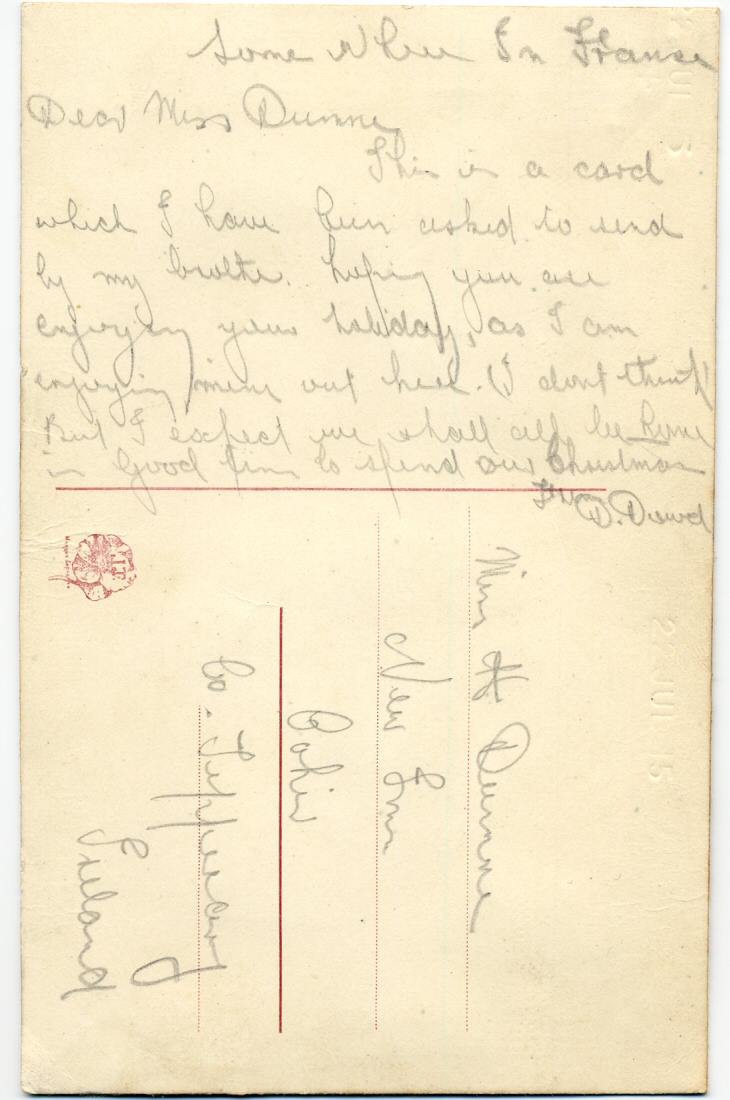 Some Where In France
Dear Miss Dunne
This is a card
which I have been asked to send
by my brother. hoping you are
enjoying your holiday, as I am
enjoying mine out here. (I dont think)
But I expect we shall all be home
in Good time to spend our Christmas
D. Dowd
Miss H Dunne
New Inn
Cahir
Co. Tipperary
Ireland
22 JUL 15